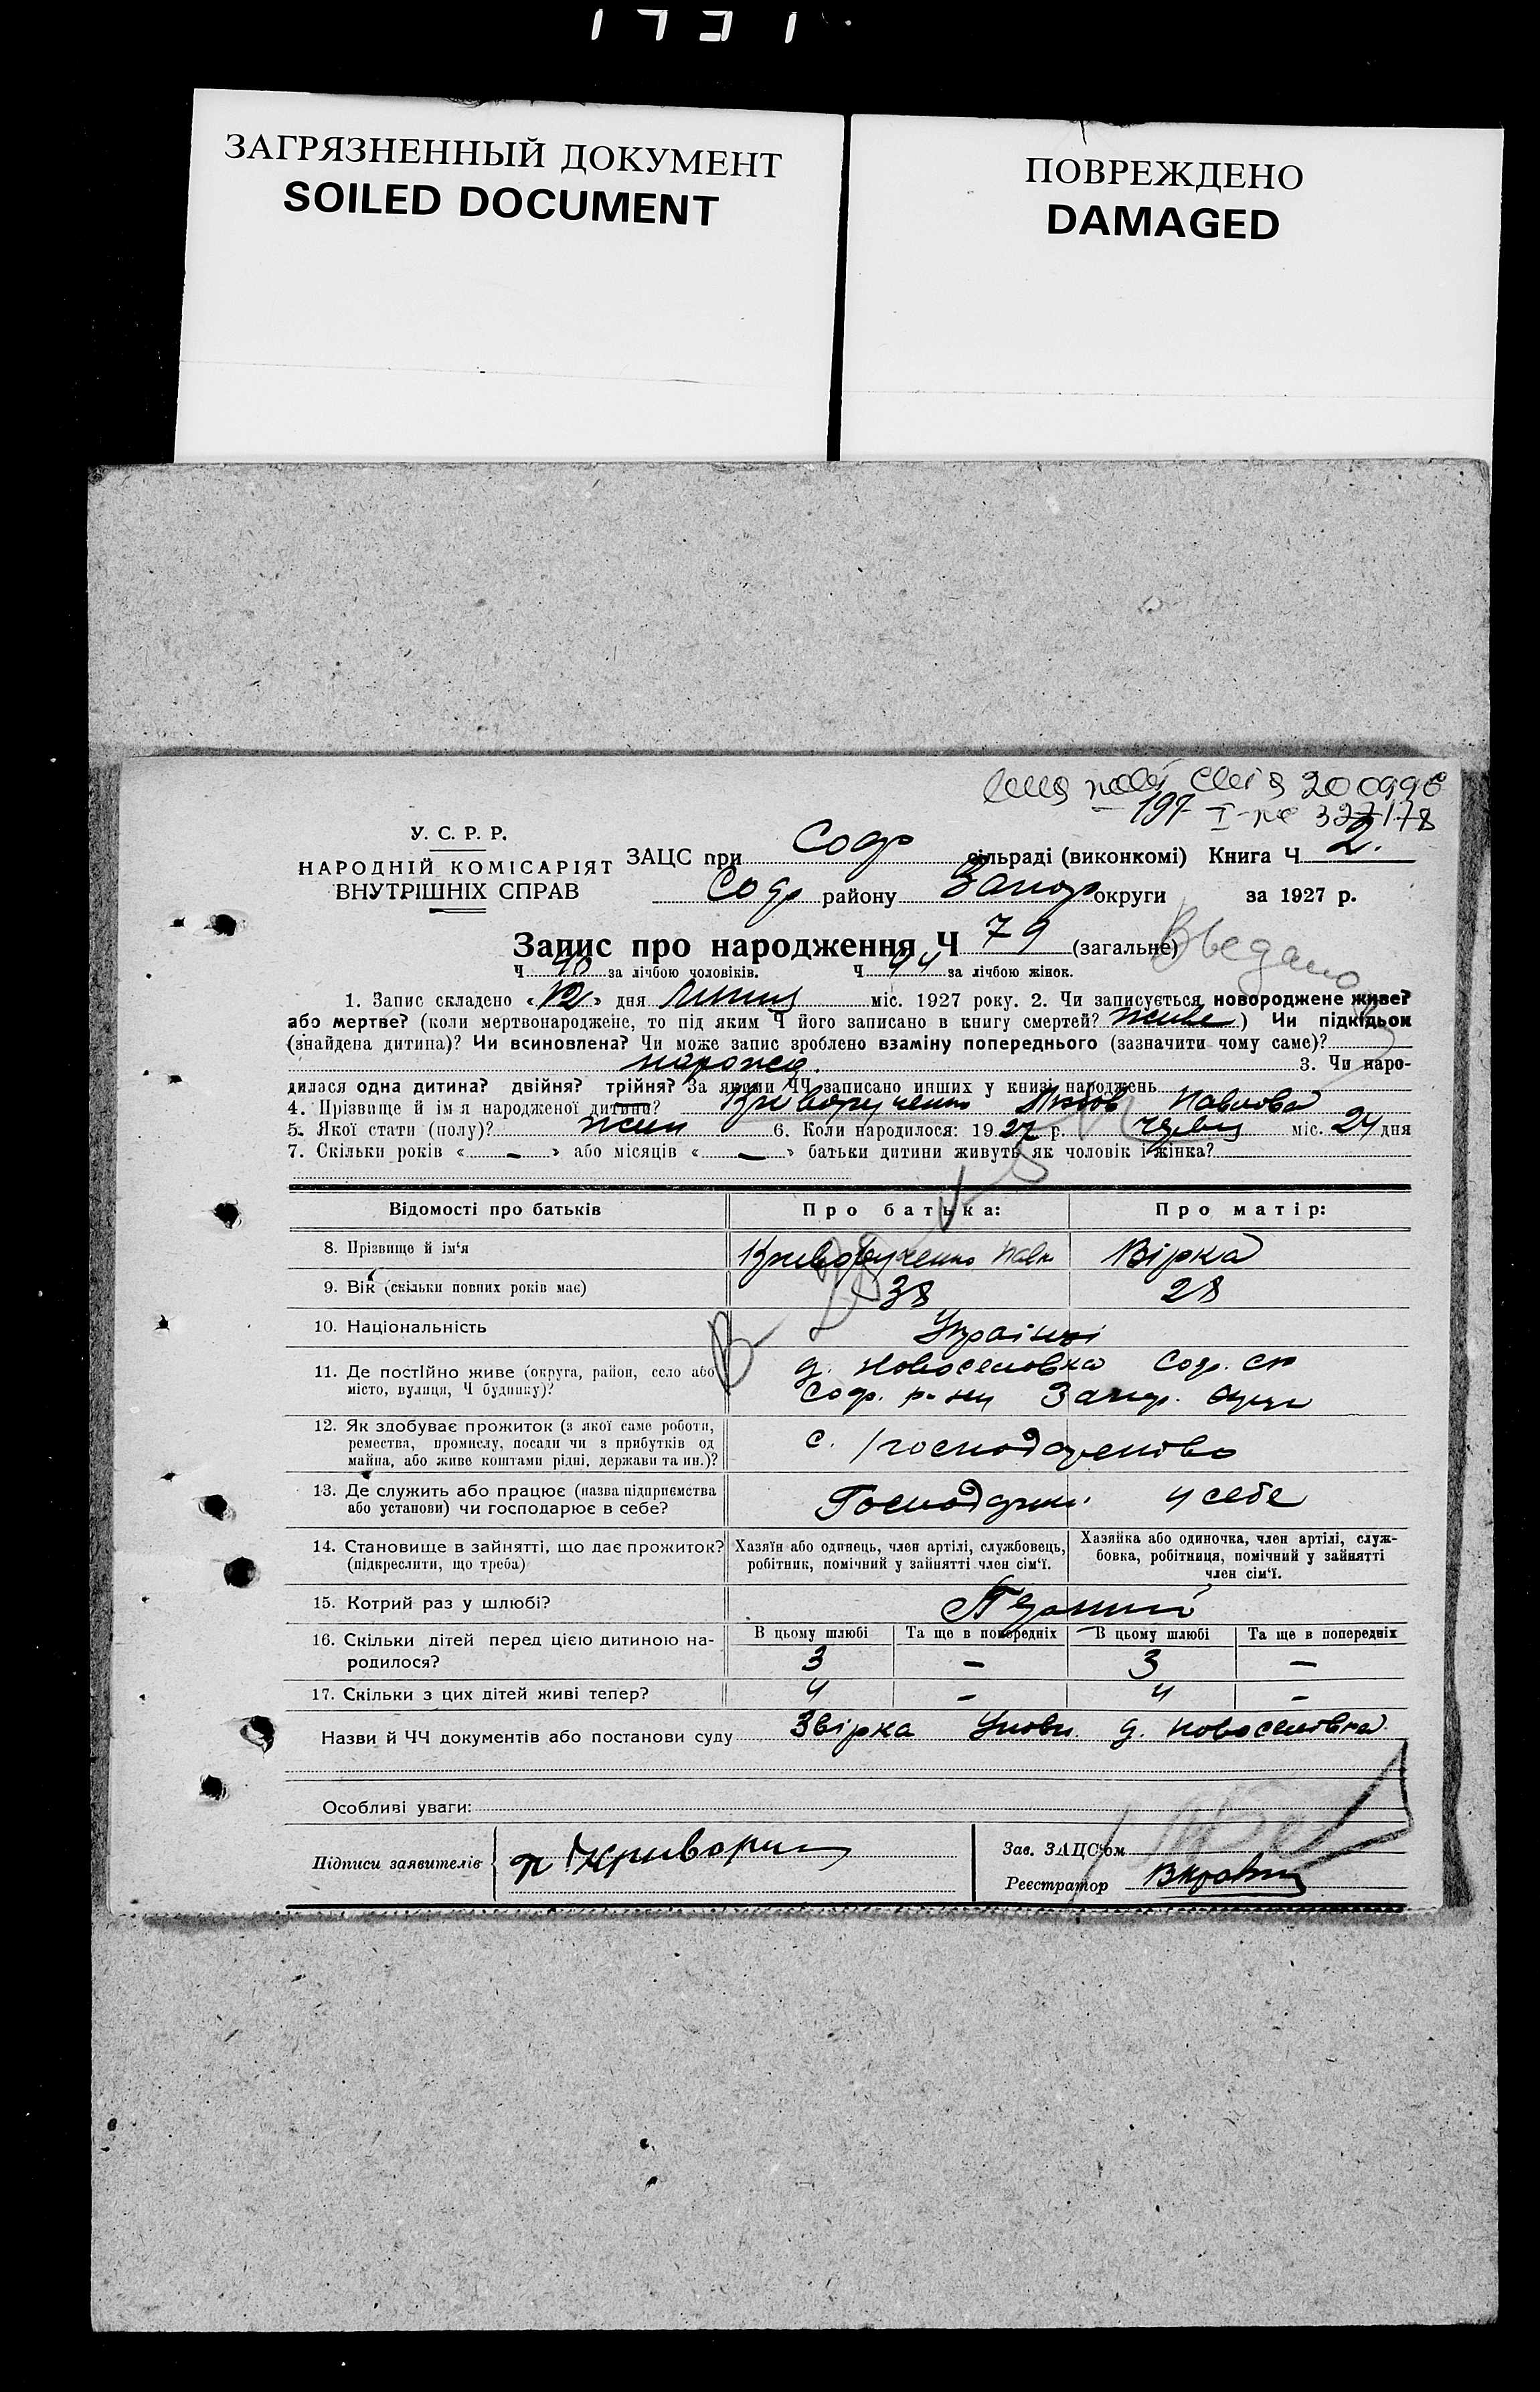 ЗАГРЯЗНЕННЫЙ ДОКУМЕНТ
SOILED DOCUMENT
ПОВРЕЖДЕНО
DAMAGED
200996
197 I-не 327178
У. С. Р. Р.
НАРОДНІЙ КОМІСАРІЯТ
ВНУТРІШНІХ СПРАВ
ЗАЦС при Софр сільраді (виконкомі) Книга Ч 2.
Софр району Запор округи за 1927 р.
Запис про народження Ч 79 (загальне)
Ч за лічбою чоловіків. Ч 44 за лічбою жінок.
1. Запис складено «12» дня Липня міс. 1927 року. 2. Чи записується новороджене живе?
або мертве? (коли мертвонароджене, то під яким Ч його записано в книгу смертей? живе) Чи підкідьок
(знайдена дитина)? Чи всиновлена? Чи може запис зроблено взаміну попереднього (зазначити чому саме)?
3. Чи наро-
дилася одна дитина? двійня? трійня? За якими ЧЧ записано инших у книзі народжень
4. Прізвище й ім я народженої дитини? Криворученко Любов Павлова
5. Якої стати (полу)? жін 6. Коли народилося: 1927 р. червн міс. 24 дня
7. Скільки років « — » або місяців « — » батьки дитини живуть як чоловік і жінка?
Відомості про батьків
Про батька:
Про матір:
8. Прізвище й ім'я
Криворученко Павл
Вірка
9. Вік (скільки повних років має)
38
28
10. Національність
Українці
11. Де постійно живе (округа, район, село або
місто, вулиця, Ч будинку)?
д. Новоселовка Софр. с/р
Софр. р-ну Запор. округи
12. Як здобуває прожиток (з якої саме роботи,
ремества, промислу, посади чи з прибутків од
майна, або живе коштами рідні, держави та ин.)?
с. /господарство
13. Де служить або працює (назва підприємства
або установи) чи господарює в себе?
у себе
14. Становище в зайнятті, що дає прожиток?
(підкреслити, що треба)
Хазяїн або одинець, член артілі, службовець,
робітник, помічний у зайнятті член сім'ї.
Хазяйка або одиночка, член артілі, служ-
бовка, робітниця, помічний у зайнятті
член сім'ї.
15. Котрий раз у шлюбі?
16. Скільки дітей перед цією дитиною на-
родилося?
В цьому шлюбі
Та ще в попередніх
В цьому шлюбі
Та ще в попередніх
3 — 3 —
17. Скільки з цих дітей живі тепер?
4 — 4 —
Назви й ЧЧ документів або постанови суду Звірка Уповн. д. Новоселовка
Особливі уваги:
Підписи заявителів
Зав. ЗАЦС'ом
Реєстратор